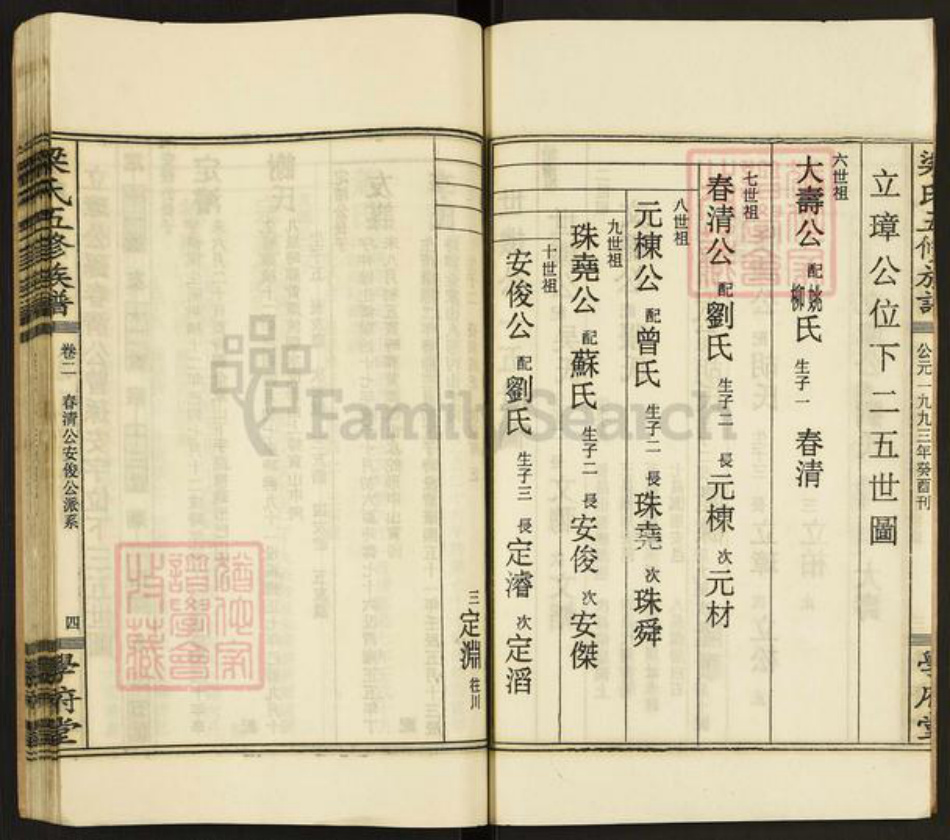 梁氏五修族譜
公元一九九三年癸酉刊
學府堂
立璋公位下二五世圖
六世祖
大壽公 配姚柳氏 生子一 春清
七世祖
春清公 配劉氏 生子二 長元棟 次元材
八世祖
元棟公 配曾氏 生子二 長珠堯 次珠舜
九世祖
珠堯公 配蘇氏 生子二 長安俊 次安傑
十世祖
安俊公 配劉氏 生子三 長定濬 次定滔
三定淵 往川
梁氏五修族譜
卷二
春清公安俊公派系
四
學府堂
FamilySearch